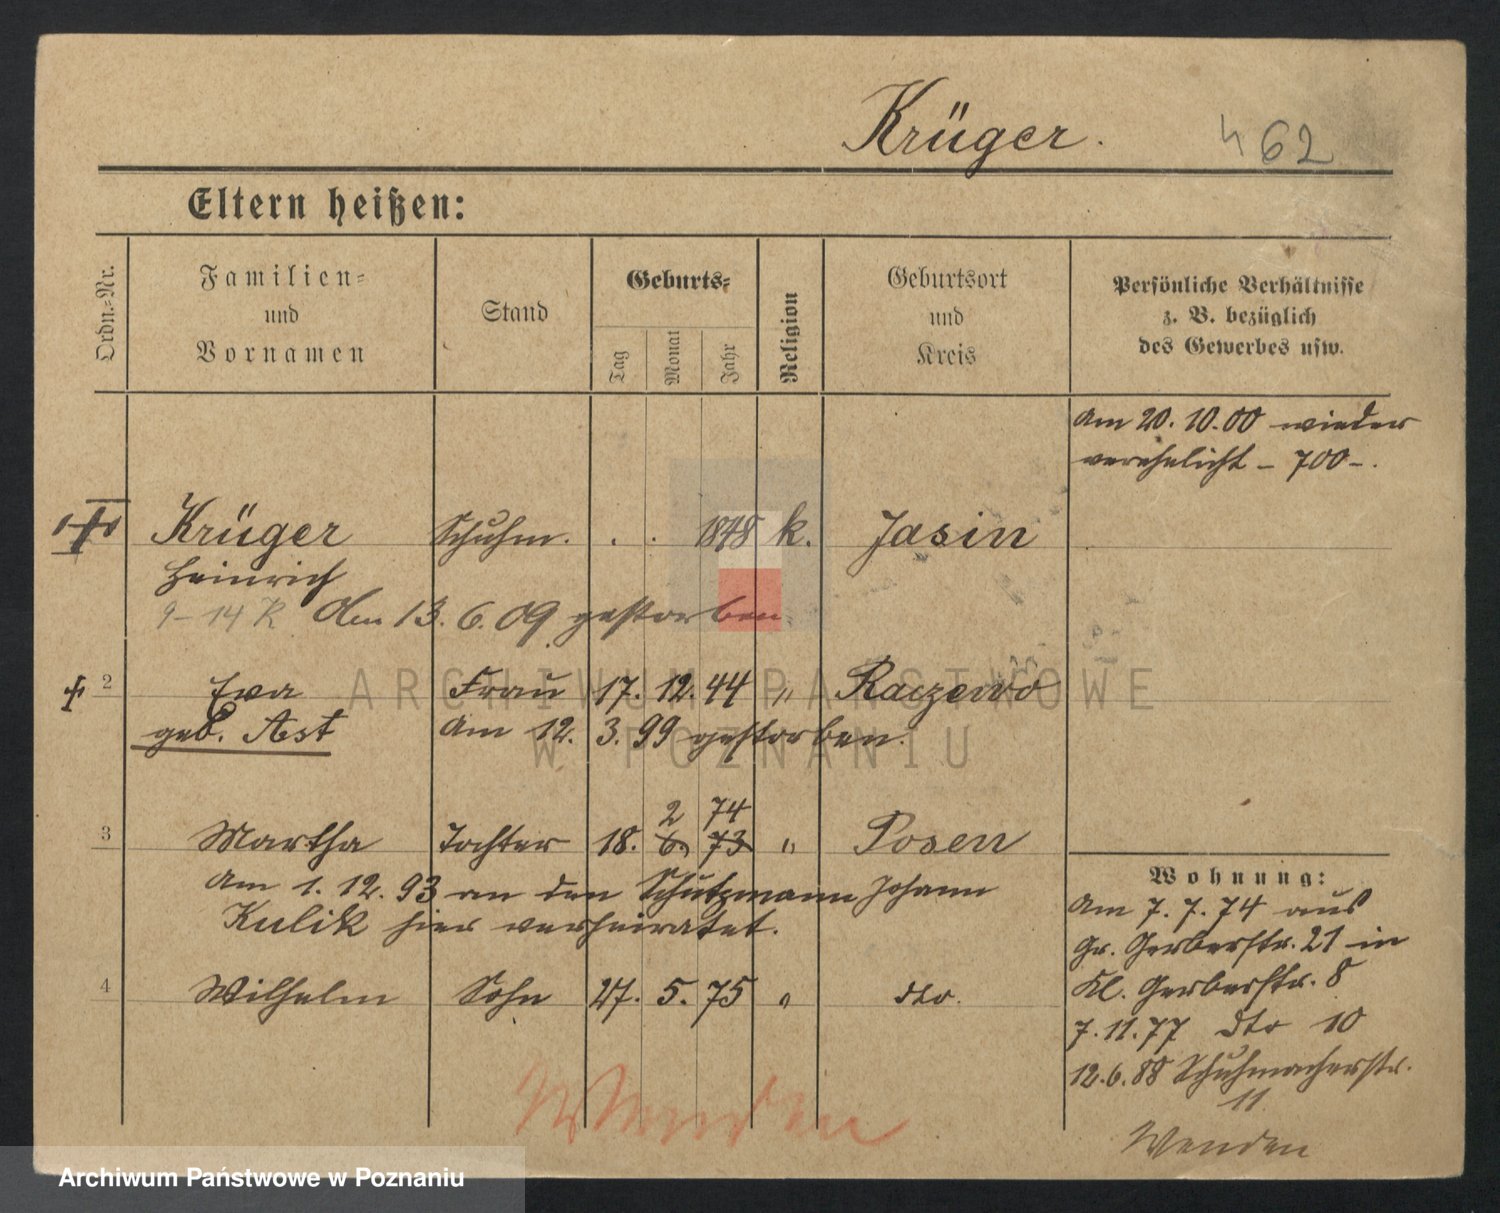 Krüger.
462
Eltern heißen:
Ordn.-Nr.
Familien-
und
Vornamen
Stand
Geburts-
Tag
Monat
Jahr
Religion
Geburtsort
und
Kreis
Persönliche Verhältnisse
z. B. bezüglich
des Gewerbes usw.
Am 20. 10. 00 wieder
verehelicht – 700 –.
Krüger Schuhm. . . 1848 k. Jasin
Heinrich
9–14 K Am 13. 6. 09 gestorben
2 Eva Frau 17. 12. 44 " Raczewo
geb. Ast Am 12. 3. 99 gestorben.
2 74
3 Martha Tochter 18. 6. 73 " Posen
Am 1. 12. 93 an den Schutzmann Johann
Kulik hier verheiratet.
4 Wilhelm Sohn 27. 5. 75 " dto.
Wohnung:
Am 7. 7. 74 aus
Gr. Gerberstr. 21 in
Kl. Gerberstr. 8
7. 11. 77 dto 10
12. 6. 88 Schuhmacherstr.
11
Wenden
Wenden
ARCHIWUM PAŃSTWOWE
W POZNANIU
Archiwum Państwowe w Poznaniu